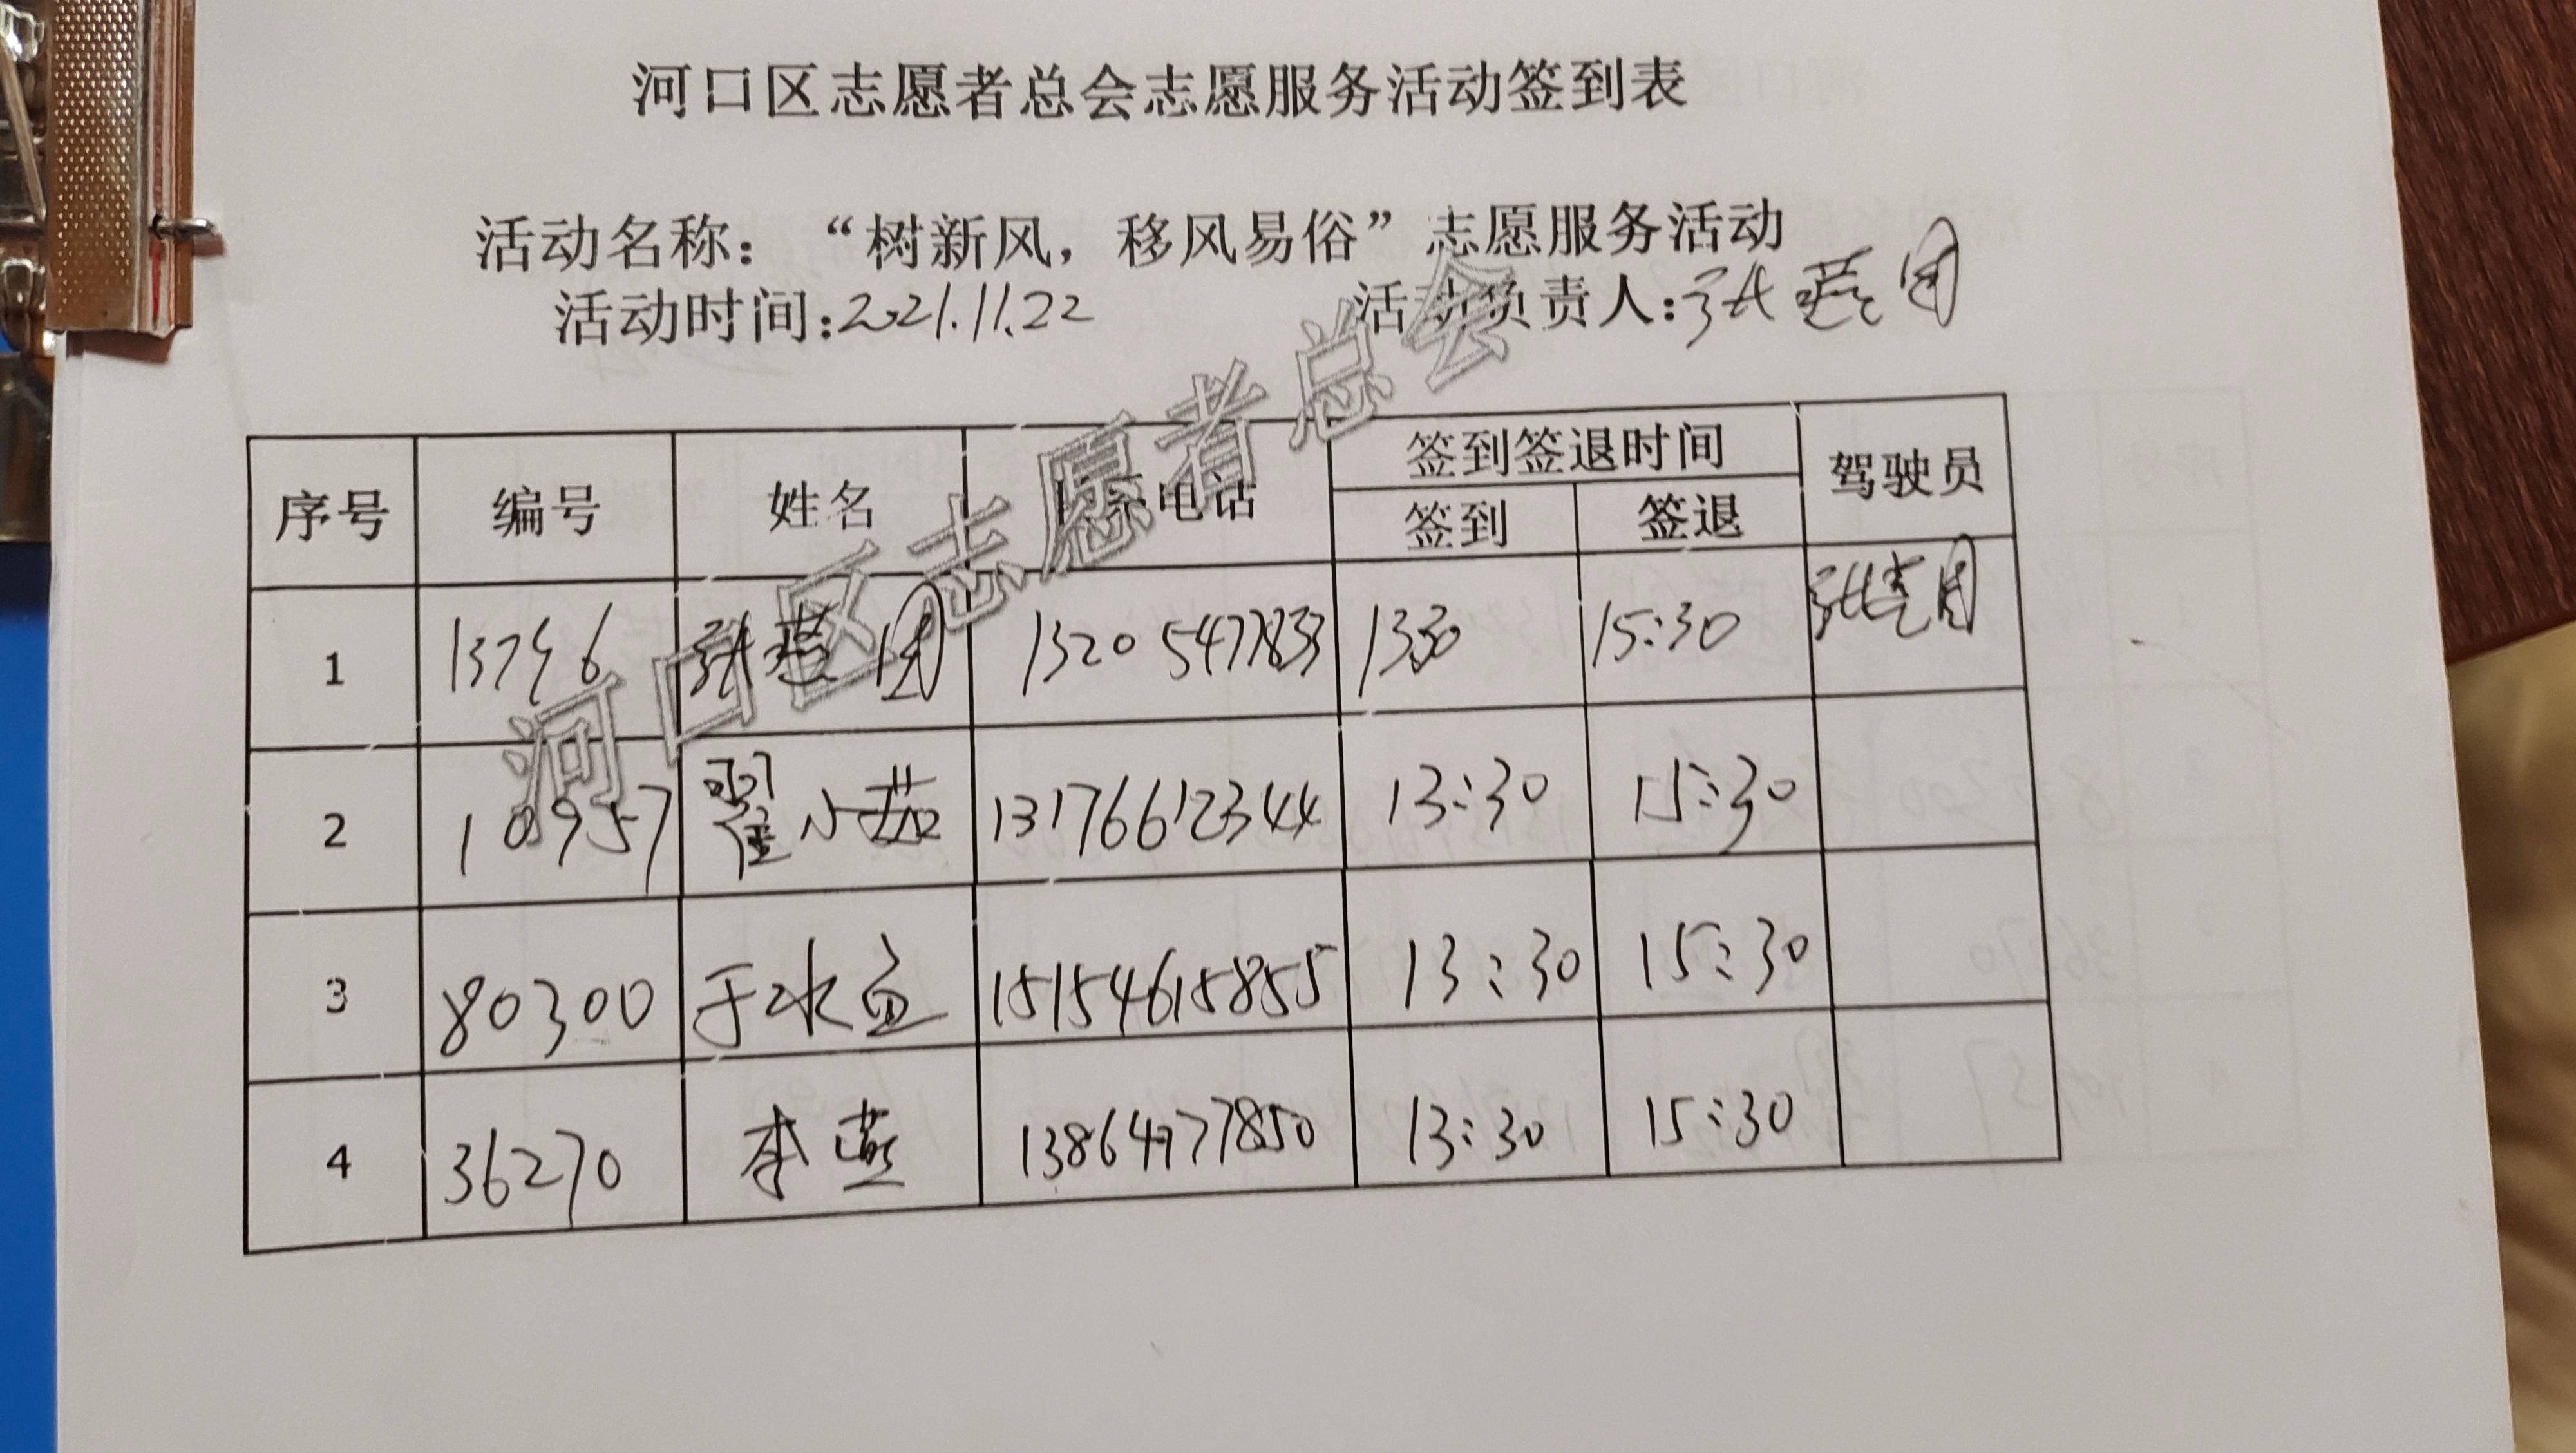 河口区志愿者总会志愿服务活动签到表
活动名称：“树新风，移风易俗”志愿服务活动
活动时间:2021.11.22 活动负责人:张燕
河口区志愿者总会
序号 编号 姓名 电话 签到签退时间 驾驶员
签到 签退
1 13796 张燕 13205477833 1330 15:30 张
2 10957 翟小茹 13176612344 13:30 15:30
3 80300 于 15154615855 13:30 15:30
4 36270 李燕 13864977850 13:30 15:30